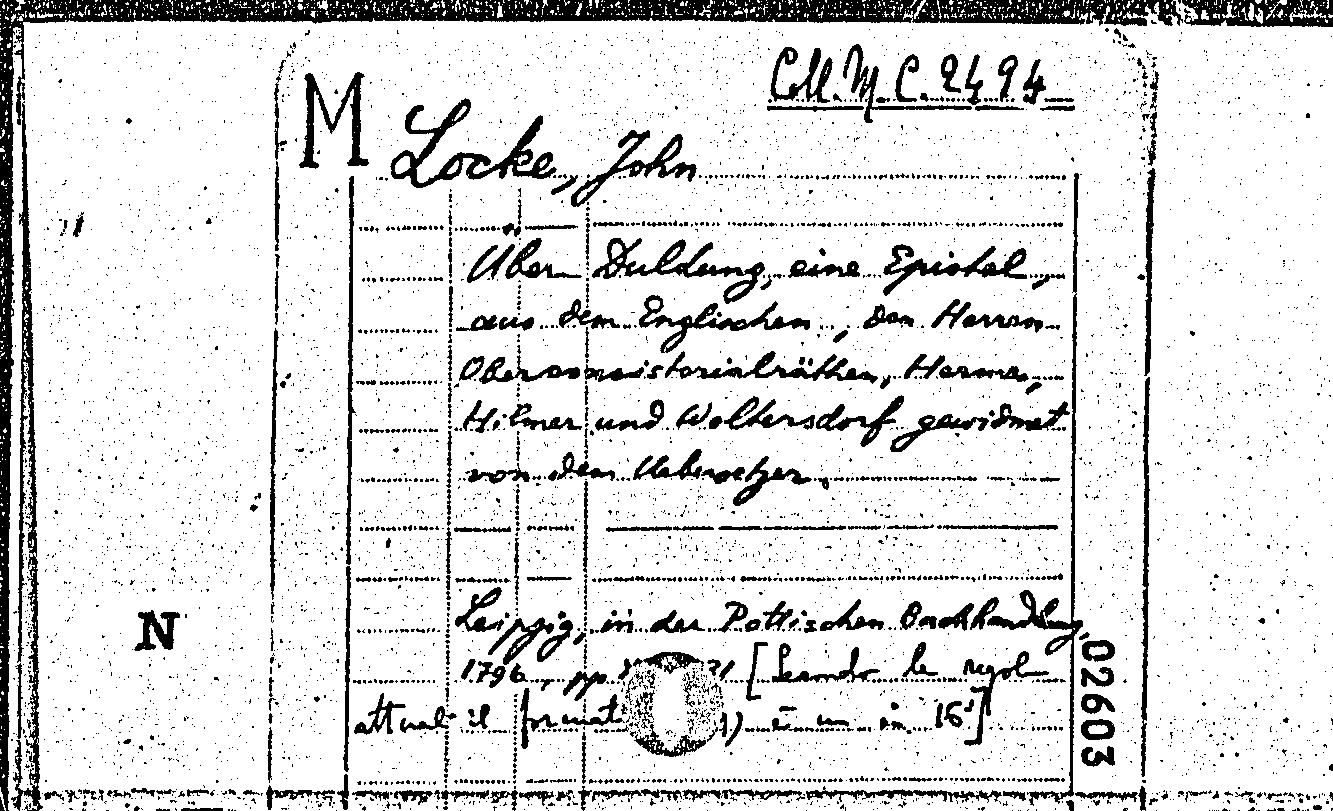 Coll. M. C. 2494
M Locke, John
Über Duldung, eine Epistel,
aus dem Englischen, den Herren
Oberconsistorialräthen, Hermes,
Hilmer und Woltersdorf gewidmet
von dem Uebersetzer.
Leipzig, in der Pottischen Buchhandlung,
N
1796, pp. 31 [Secondo le regole
attuali il format è un in 16°]
02603